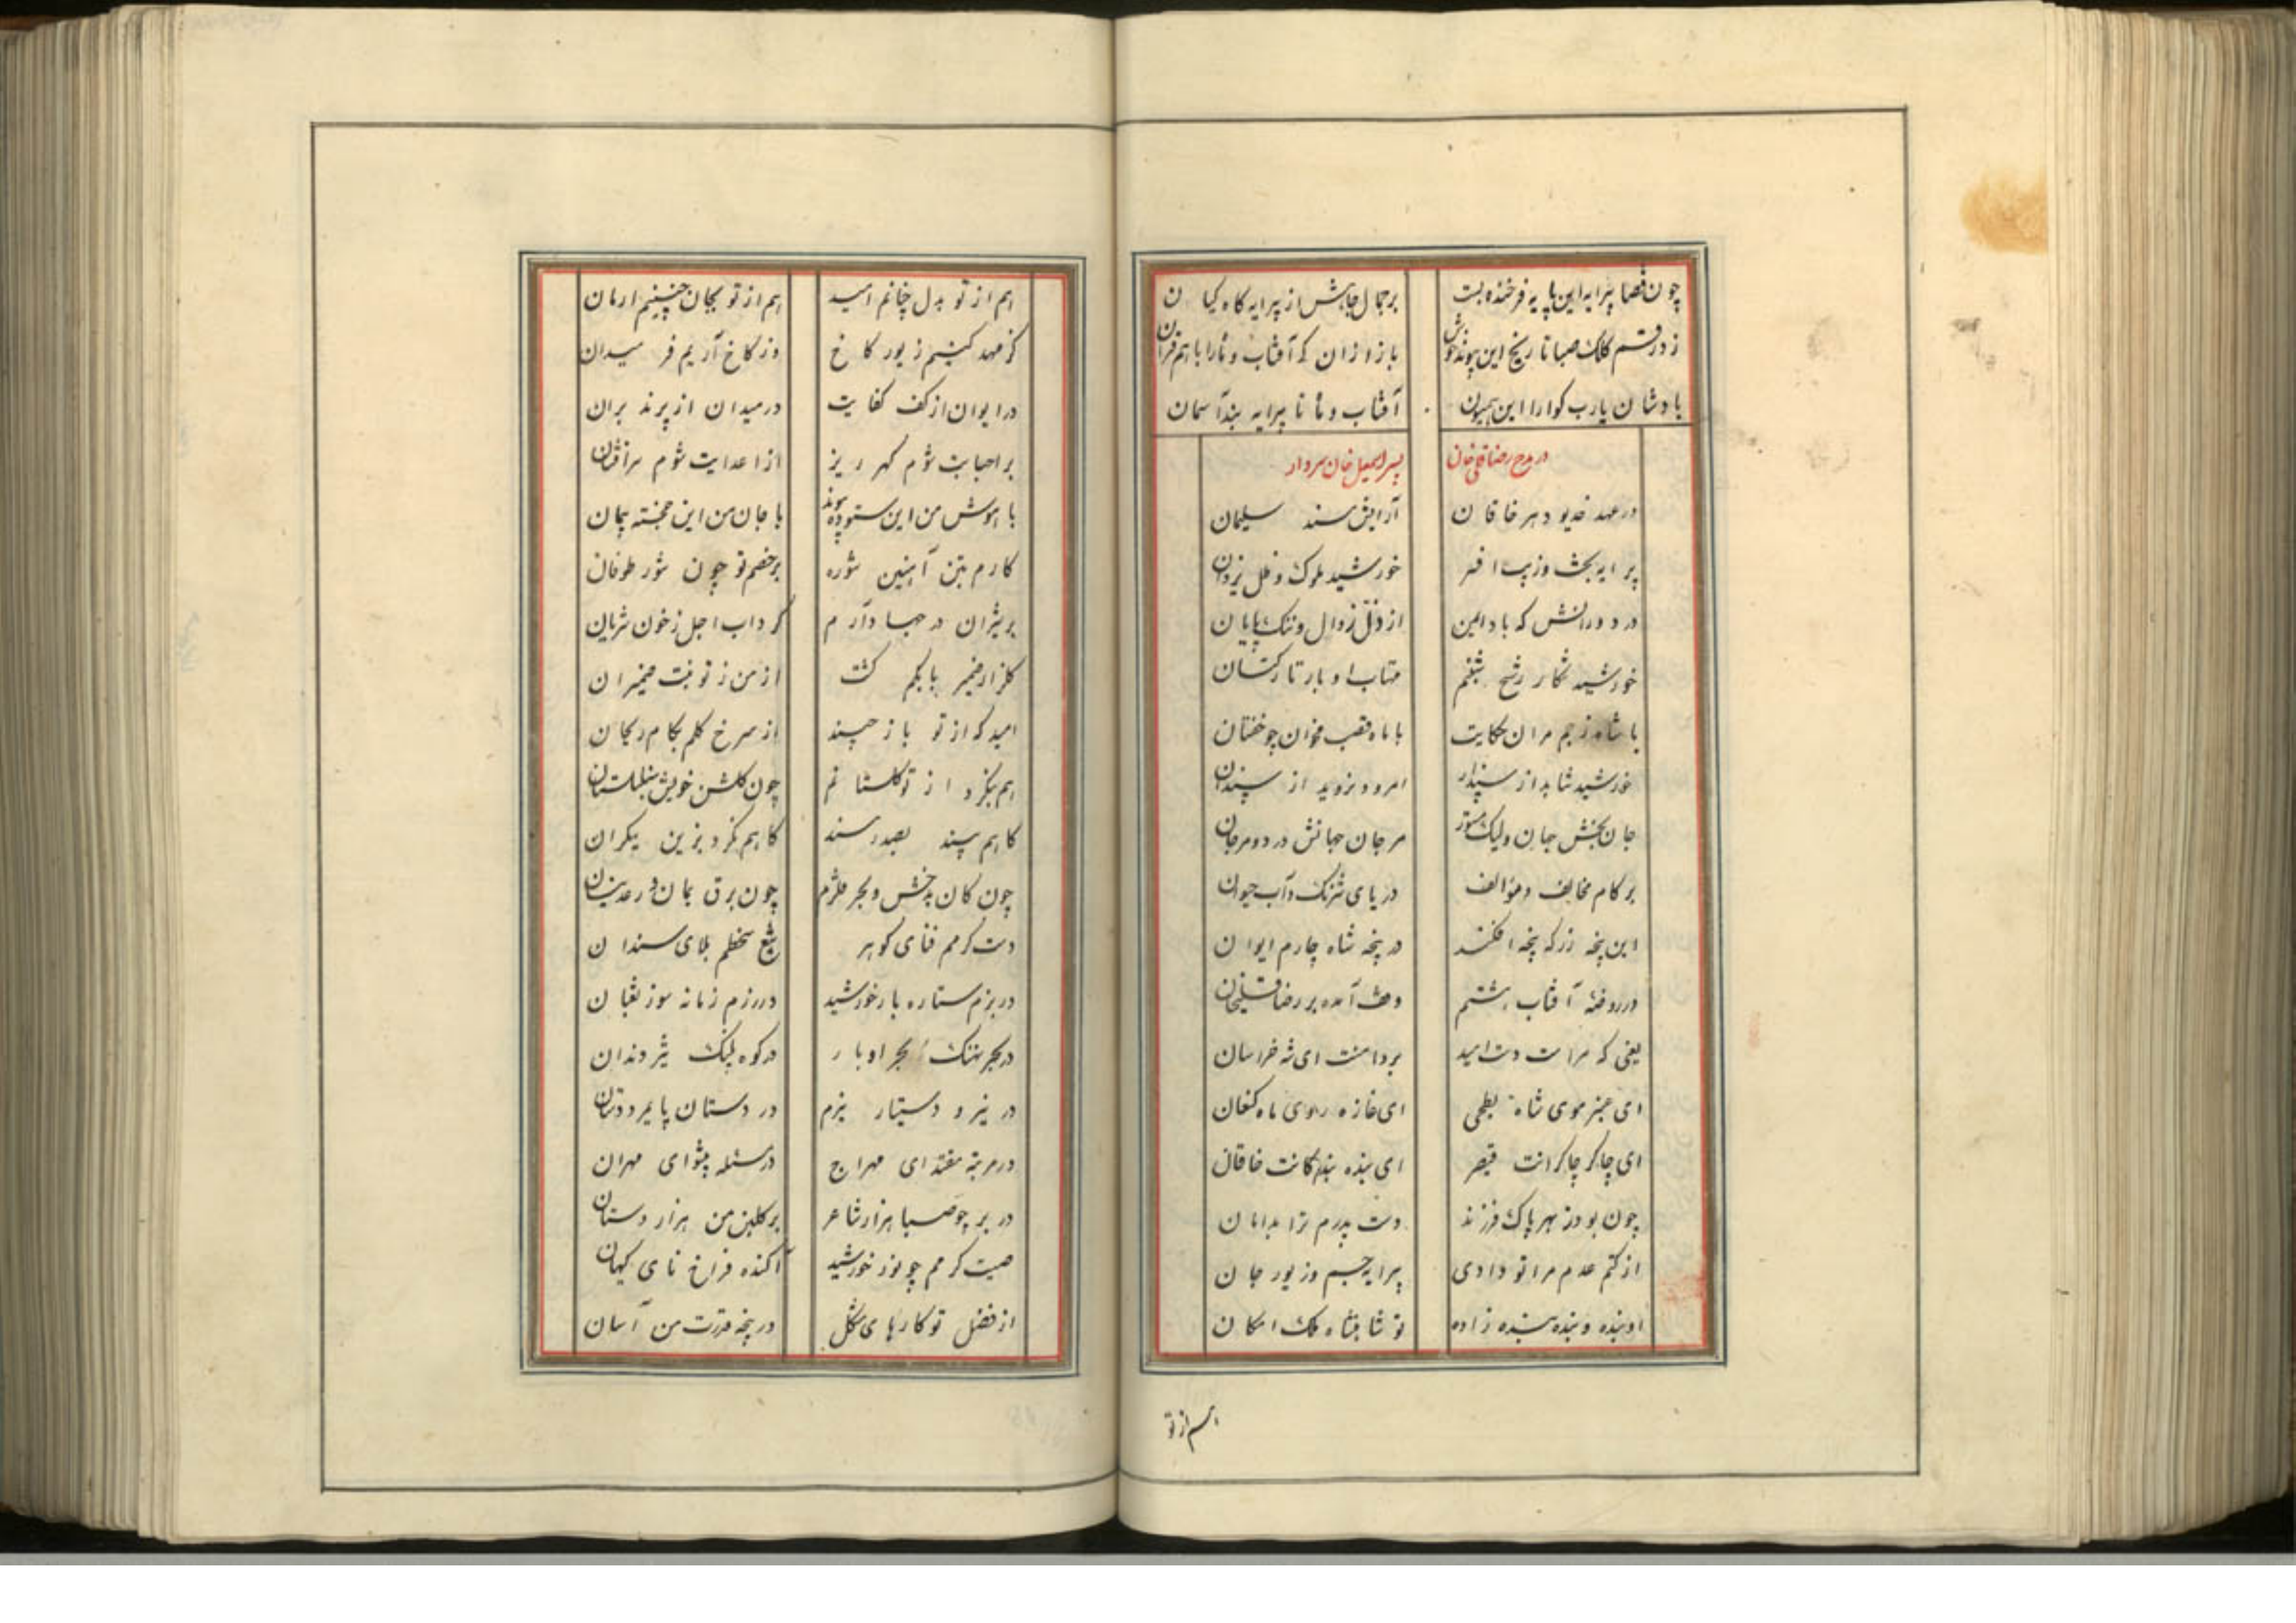 چون قضا پیرایه این پایه فرخنده بست بر جمال جاهش از پیرایه کاه کیان
زد رقم کلک صبا تاریخ این پیوند خوش باز ازان که آفتاب و ماه را با هم قران
بادشان یارب کوارا این همیون آفتاب و ماه تا پیرایه بند آسمان
در مدح رضاقلی خان پسر اسمعیل خان سردار
در عهد خدیو دهر خاقان آرایش مسند سلیمان
پیرایه بخش وزیب افسر خورشید ملوک و ظل یزدان
در دورانش که باد ایمن از ذل زوال و ننک پایان
خورشید شکار رشح شبنم مهتاب او بار تار کتان
با شاه ز جم مران حکایت با ماه قصب مخوان چو خفتان
خورشید نتابد از سپندار امرود نروید از سپندان
جان بخش جهان ولیک مستور مرجان جهانش در دو مرجان
بر کام مخالف و مؤالف دریای شرنک و آب حیوان
این پنجه زر که پنجه افکند در پنجه شاه چارم ایوان
در روضه آفتاب هشتم وقف آمده بر رضاقلیخان
یعنی که مراست دست امید بر دامنت ای شه خراسان
ای عنبر موی شاه بطحی ای غازه روی ماه کنعان
ای چاکر چاکرانت قیصر ای بنده بندکانت خاقان
چون بود ز بهر پاک فرزند دست پدرم ترا بدامان
از کتم عدم مرا تو دادی پیرایه جسم وزیور جان
او بنده و بنده بنده زاده تو شاهنشاه ملک امکان
هم از تو
هم از تو بدل چنانم امید هم از تو بجان چنینم ارمان
کز مهد کنیم زیور کاخ وز کاخ آریم فر میدان
در ایوان از کف کفایت در میدان از پرند بران
بر احبابت شوم کهر ریز از اعدایت شوم سرافشان
با هوش من این ستوده پیوند با جان من این خجسته پیمان
کارم بتن آهنین شوره بر خصم تو چون شور طوفان
بر شیران در جهاد آرم کرداب اجل ز خون شریان
کلزار ضمیر پاکم کشت از من ز تو بست ضمیران
امید که از تو باز چیند از سرخ کلم بکام ریحان
هم بنکرد از تو کلستانم چون کلشن خویش سنبلستان
کاهم بیند بصدر مسند کاهم نکرد بزین یکران
چون کان بدخش و بحر قلزم چون برق یمان و رعد نیسان
دست کرمم فنای کوهر تیغ سخطم بلای سندان
در بزم ستاره بار خورشید در رزم زمانه سوز ثعبان
در بحر نهنک بحر اوبار در کوه پلنک شیر دندان
در نیرو دستیار نیرم در دستان پایمرد دستان
در مرتبه مقتدای مهراج در مسئله پیشوای مهران
در بر چو صبا هزار شاعر بر کلبن من هزار دستان
صیت کرمم چو نور خورشید آکنده فراخنای کیهان
از فضل تو کارهای مشکل در پنجه قدرت من آسان